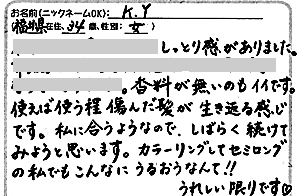 お名前(ニックネームOK): K.Y
(福井県在住、34歳、性別: 女 )
しっとり感がありました。
香料が無いのもイイです。
使えば使う程 傷んだ髪が 生き返る感じ
です。私に合うようなので、しばらく続けて
みようと思います。カラーリングしてセミロング
の私でもこんなに うるおうなんて!!
うれしい限りです